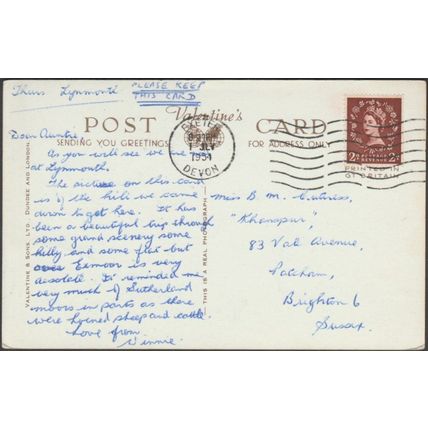 Thurs Lynmouth
PLEASE KEEP
THIS CARD
Valentine's
POST CARD
SENDING YOU GREETINGS
FOR ADDRESS ONLY
EXETER
1 JLY
1954
DEVON
POSTAGE REVENUE
2D 2D
PRINTED IN
GT BRITAIN
Dear Auntie,
As you will see we are
at Lynmouth.
The picture on this card
is of the hill we came
down to get here. It has
been a beautiful trip through
some grand scenery some
hilly and some flat but
Exmoor is very
desolate. It reminded me
very much of Sutherland
moors in parts as there
were horned sheep and cattle.
Love from
Winnie.
Miss B. M.
"Khanspur",
83 Vale Avenue,
Patcham,
Brighton 6
Sussex.
VALENTINE & SONS, LTD. DUNDEE AND LONDON.
THIS IS A REAL PHOTOGRAPH